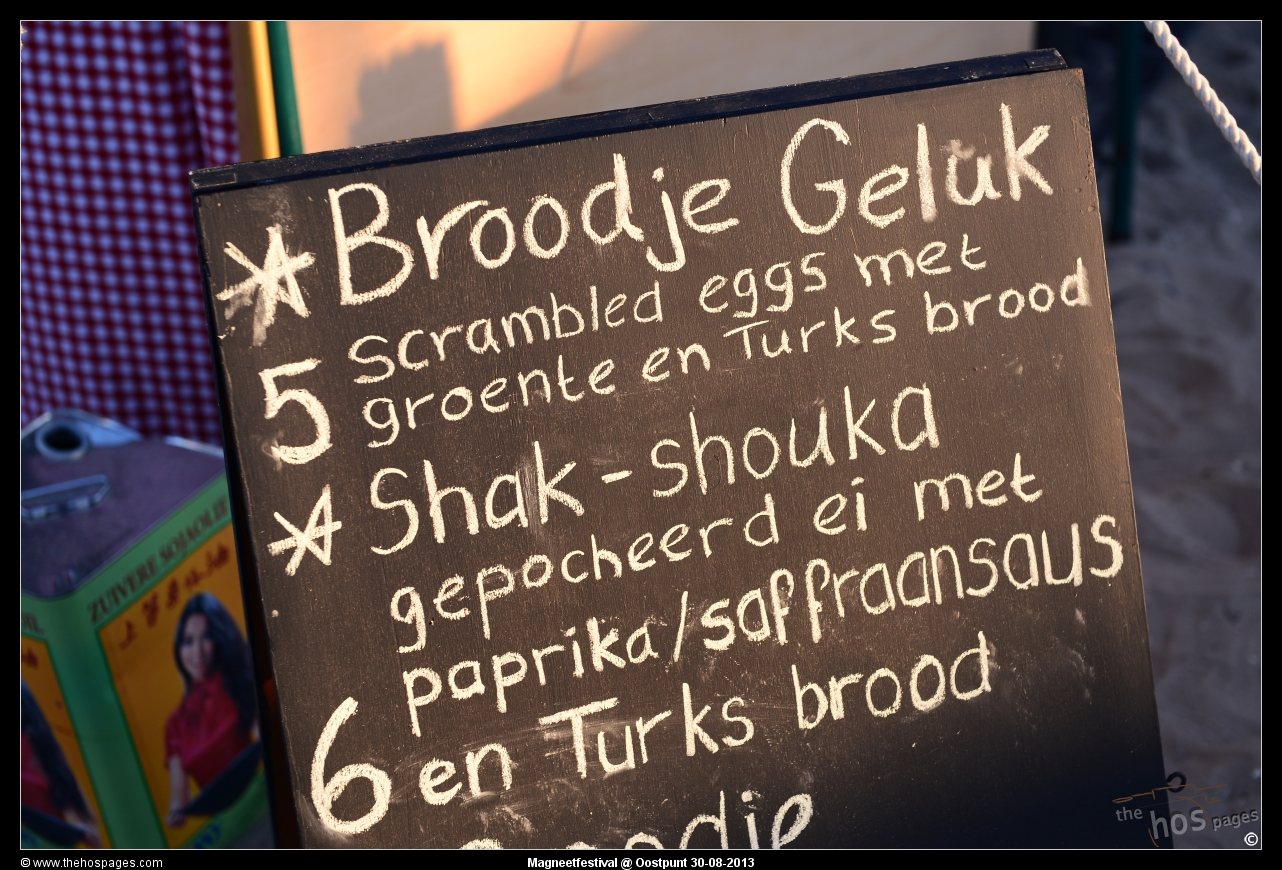 * Broodje Geluk
scrambled eggs met
5 groente en Turks brood
* Shak-shouka
gepocheerd ei met
paprika/saffraansaus
6 en Turks brood
Broodje
ZUIVERE SOJAOLIE
the hos pages
©
© www.thehospages.com
Magneetfestival @ Oostpunt 30-08-2013